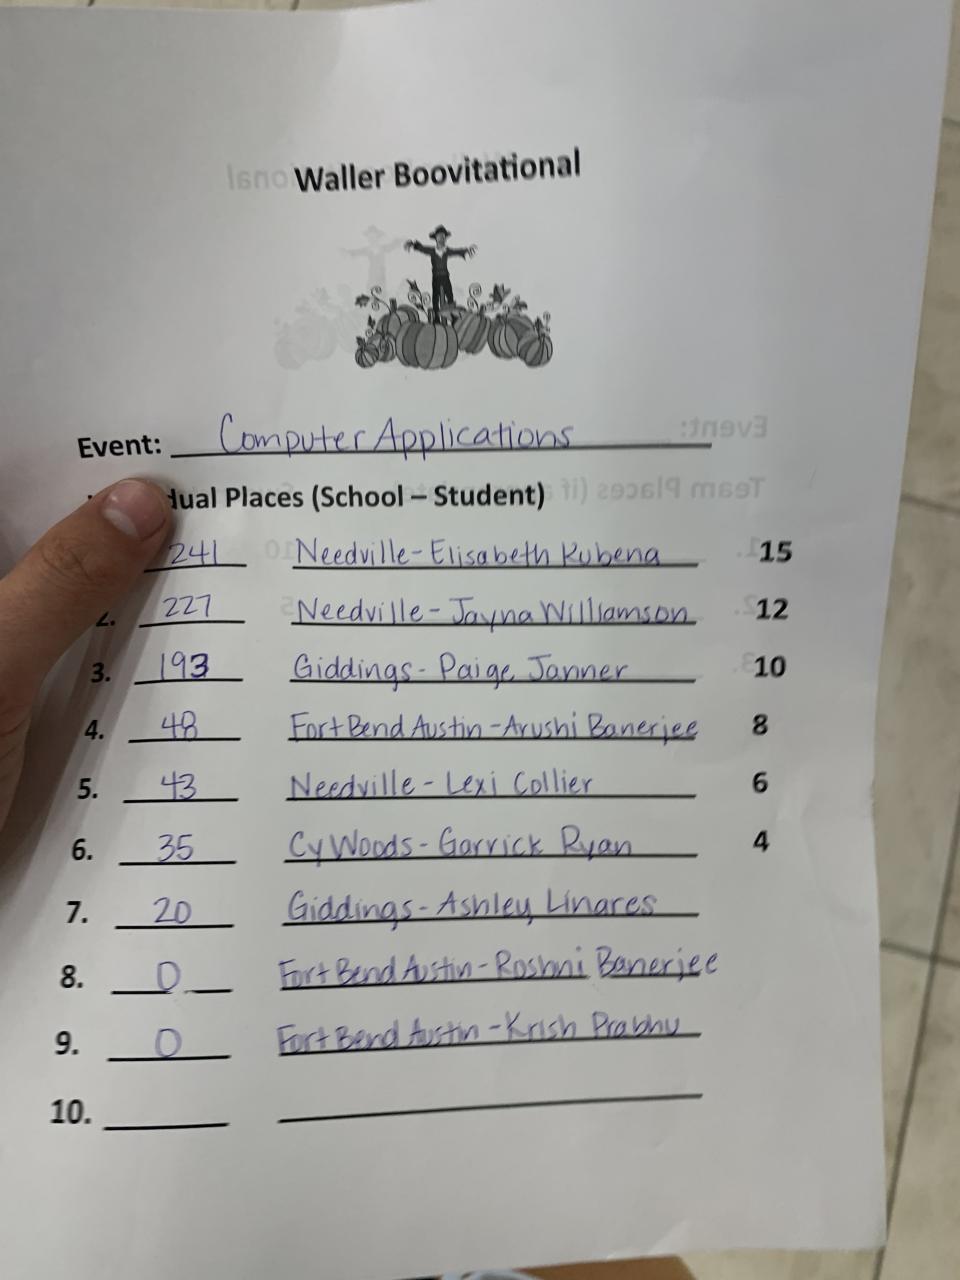 Waller Boovitational
Event: Computer Applications
dual Places (School – Student)
241 Needville-Elisabeth Kubena 15
2. 227 Needville-Jayna Williamson 12
3. 193 Giddings-Paige Janner 10
4. 48 Fort Bend Austin-Arushi Banerjee 8
5. 43 Needville-Lexi Collier 6
6. 35 Cy Woods-Garrick Ryan 4
7. 20 Giddings-Ashley Linares
8. 0 Fort Bend Austin-Roshni Banerjee
9. 0 Fort Bend Austin-Krish Prabhu
10.